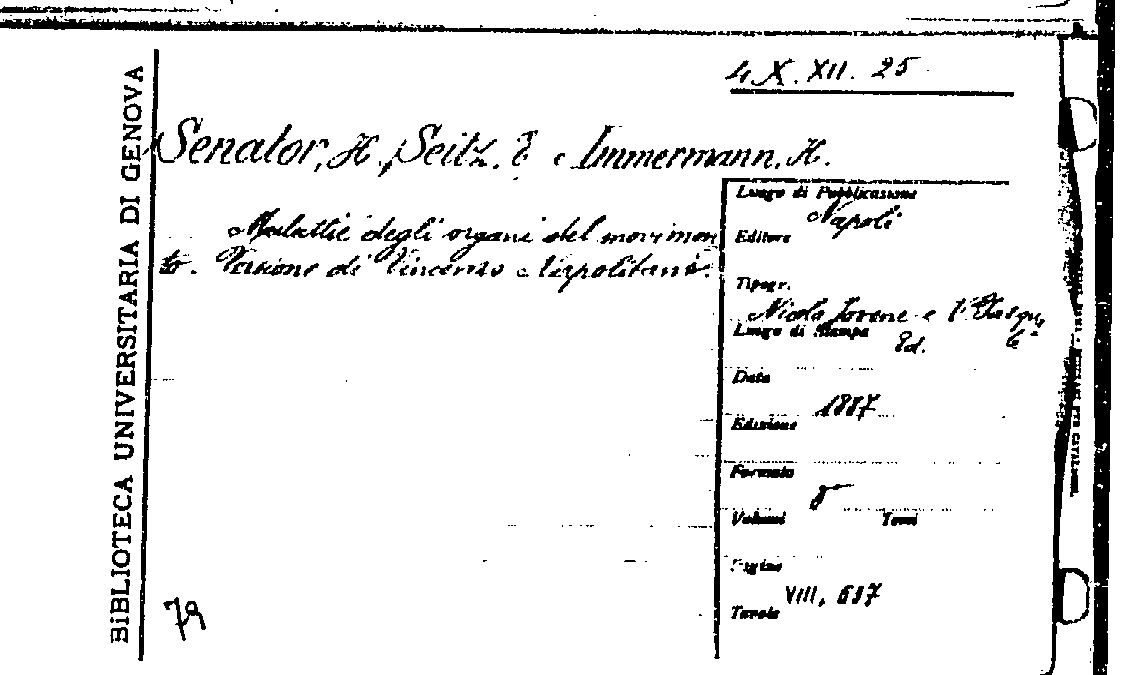 4. X. XII. 25
BIBLIOTECA UNIVERSITARIA DI GENOVA
Senator, H., Seitz, E. e Immermann, H.
Malattie degli organi del movimen
to. Versione di Vincenzo Napolitani.
Luogo di Pubblicazione
Napoli
Editore
Tipogr.
Nicola Jovene e
Luogo di Stampa
Ed.
Data
1887
Edizione
Formato
8°
Volumi Tomi
Pagine
VIII, 617
Tavole
79